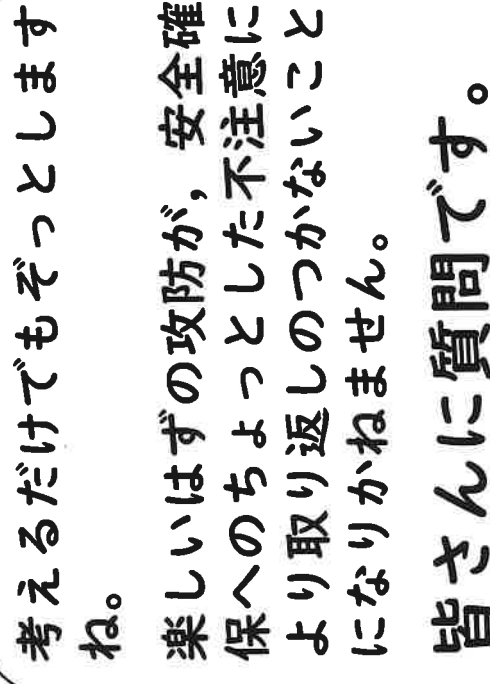 考えるだけでもぞっとします
ね。
楽しいはずの攻防が，安全確
保へのちょっとした不注意に
より取り返しのつかないこと
になりかねません。
皆さんに質問です。